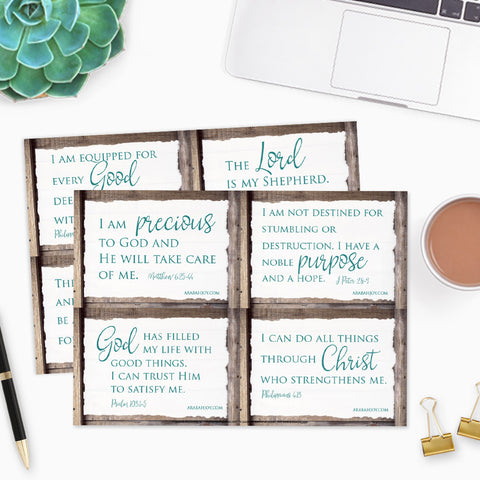 I am equipped for
every Good
dee
wit
Philippians
The Lord
is my Shepherd.
Th
an
be
fo
I am precious
to God and
He will take care
of me. Matthew 6:25-44
I am not destined for
stumbling or
destruction. I have a
noble purpose
and a hope. 1 Peter 2:6-9
ARABAHJOY.COM
God has filled
my life with
good things.
I can trust Him
to satisfy me.
Psalm 103:1-5
ARABAHJOY.COM
I can do all things
through Christ
who strengthens me.
Philippians 4:13
ARABAHJOY.COM